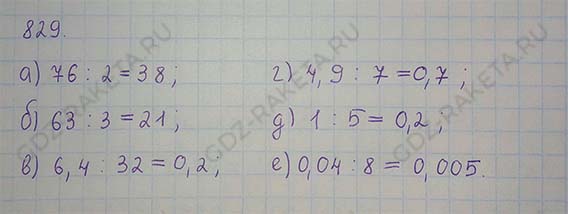 829.
а) 76 : 2 = 38;
б) 63 : 3 = 21;
в) 6,4 : 32 = 0,2;
г) 4,9 : 7 = 0,7;
д) 1 : 5 = 0,2;
е) 0,04 : 8 = 0,005.
GDZ-RAKETA.RU
GDZ-RAKETA.RU
GDZ-RAKETA.RU